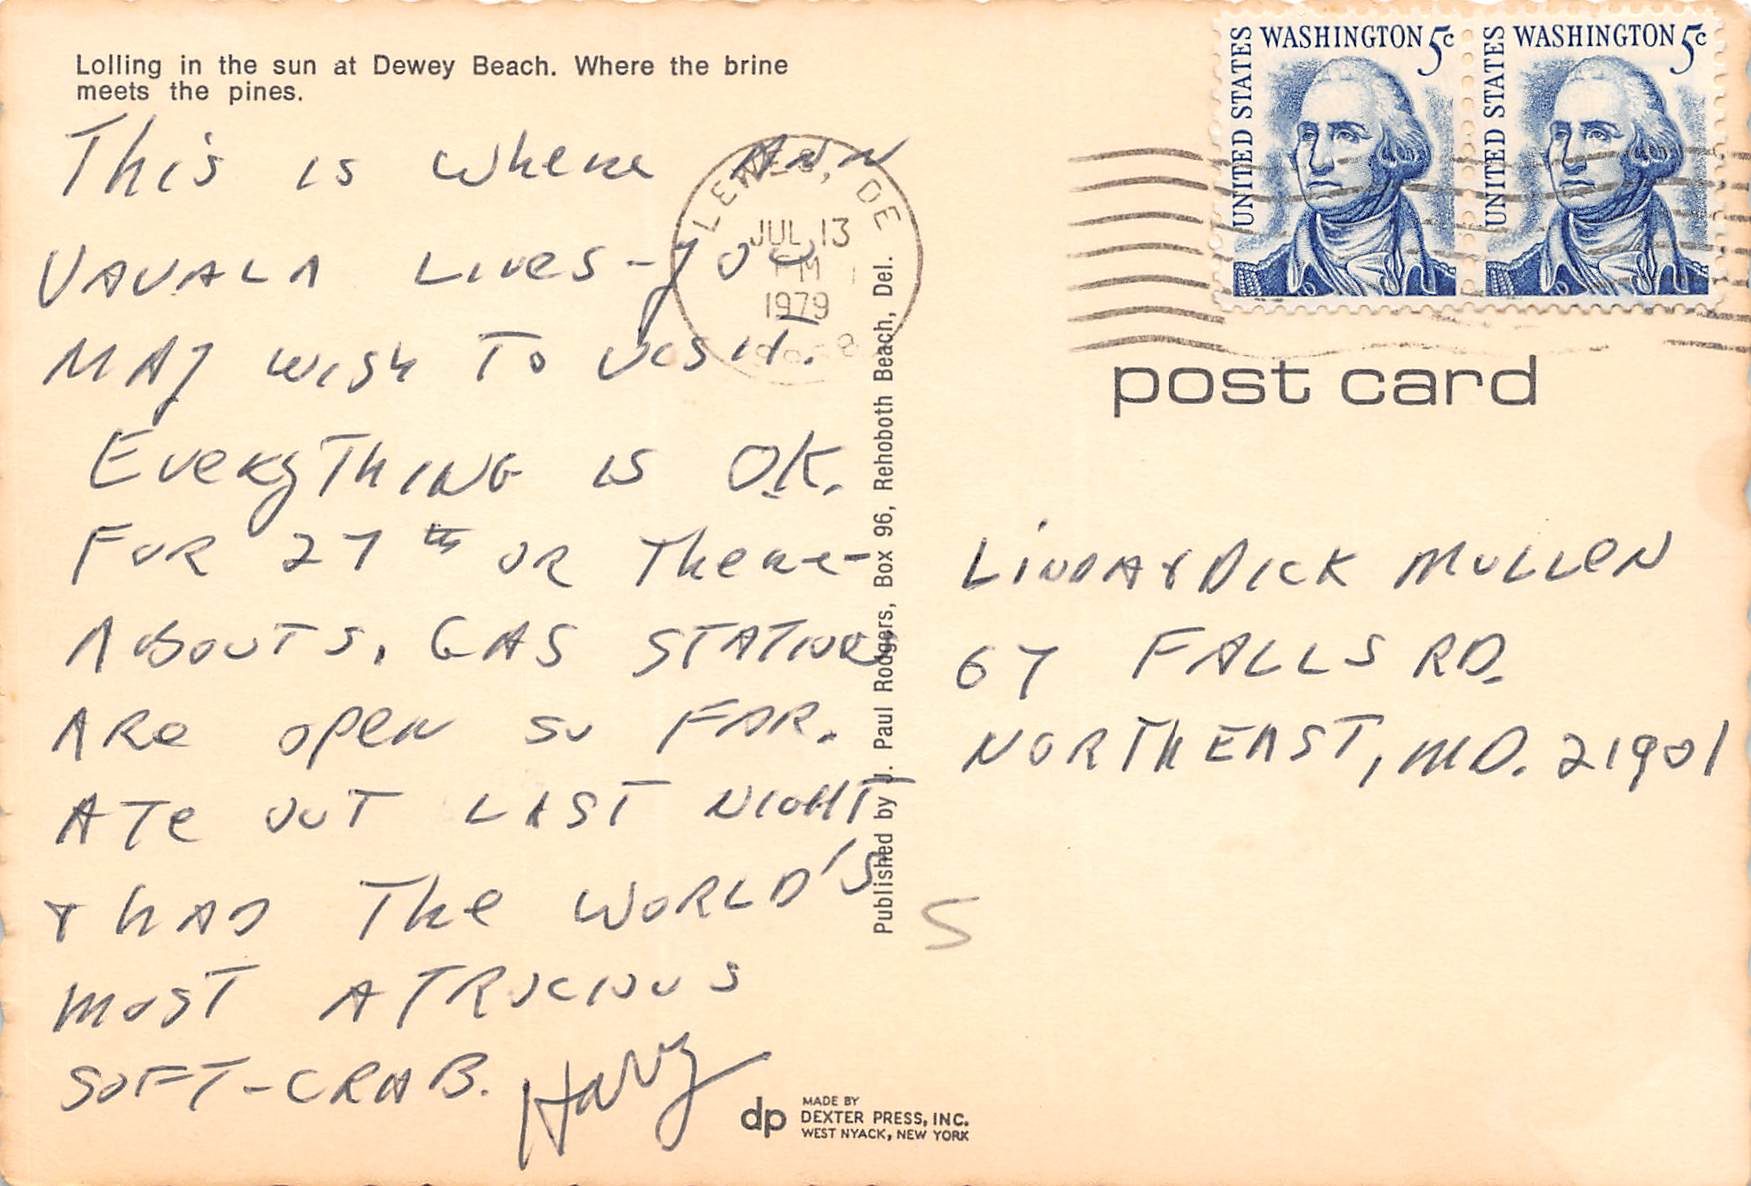 Lolling in the sun at Dewey Beach. Where the brine
meets the pines.
This is where Ann
VAVALA Lives - you
MAy wish To visit.
EveryTHING is O.K.
FOR 27th OR There-
ABOUTS. GAS STATIONS
ARe open so FAR.
ATe OUT LAST NIGHT
& HAD The WORLD'S
MOST ATROCIOUS
SOFT-CRAB. Harry
UNITED STATES WASHINGTON 5c
UNITED STATES WASHINGTON 5c
LEWES, DE
JUL 13
PM
1979
post card
LINDA & DICK MULLEN
67 FALLS RD.
NORTHEAST, MD. 21901
5
Published by J. Paul Rodgers, Box 96, Rehoboth Beach, Del.
dp
MADE BY
DEXTER PRESS, INC.
WEST NYACK, NEW YORK